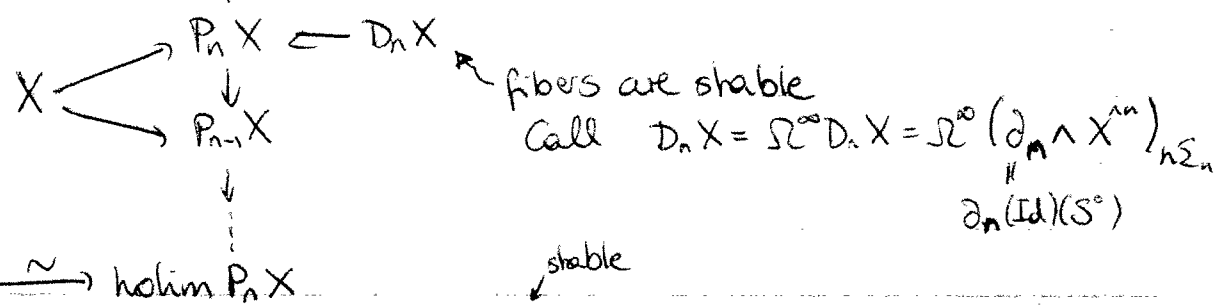 P_n X ← D_n X
X
fibers are stable
P_{n-1} X
Call D_n X = Ω^∞ D_n X = Ω^∞ (∂_n ∧ X^{∧n})_{hΣ_n}
∂_n(Id)(S°)
~→ holim P_n X
stable